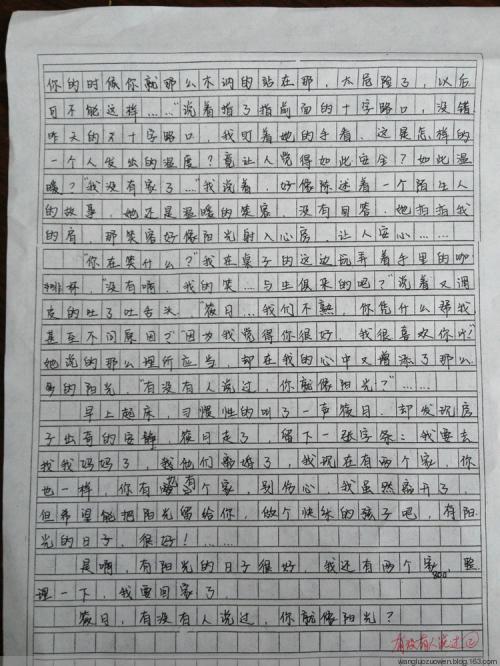 你的时候你就那么木讷的站在那，太危险了，以后
可不能这样……"说着指了指前面的十字路口，没错
昨天的那个十字路口，我盯着她的手看，这是怎样的
一个人发出的温度？竟让人觉得如此安全？如此温
暖？"我没有家了…"我说着，好像陈述着一个陌生人
的故事，她还是温暖的笑容，没有回答，她拍拍我
的肩，那笑容好像阳光射入心房，让人安心……
"你在笑什么？"我在桌子的这边玩弄着手里的咖
啡杯，"没有啊，我的笑…与生俱来的吧？"说着又调
皮的吐了吐舌头。"筱日…我们不熟，你凭什么帮我
甚至不问原因？""因为我觉得你很好，我很喜欢你啊？"
她说的那么理所应当，却在我的心中又增添了那么
多的阳光，"有没有人说过，你就像阳光？"……
早上起床，习惯性的叫了一声筱日，却发现房
子出奇的安静，筱日走了，留下一张字条：我要去
找我妈妈了，我他们离婚了，我现在有两个家，你
也一样，你有两个家，别伤心，我虽然离开了，
但希望能把阳光留给你，做个快乐的孩子吧，有阳
光的日子，很好！……
是啊，有阳光的日子很好，我还有两个家，整
理一下，我要回家了。
800
筱日，有没有人说过，你就像阳光？
有没有人说过②
wangluozuowen.blog.163.com